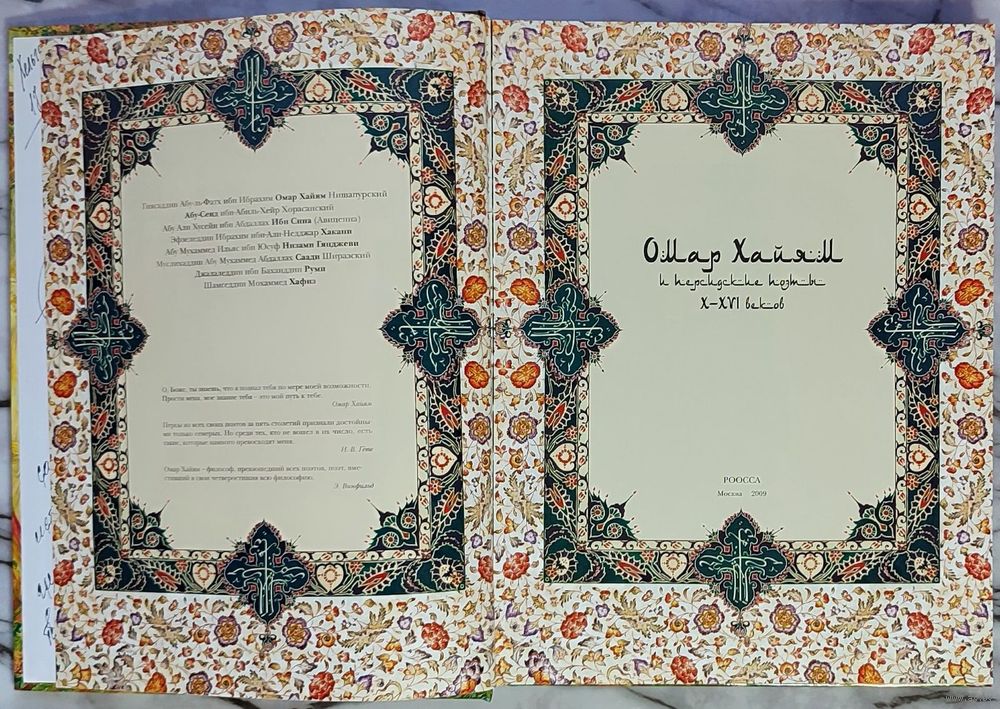 Гиясаддин Абу-ль-Фатх ибн Ибрахим Омар Хайям Нишапурский
Абу-Сеид ибн-Абиль-Хейр Хорасанский
Абу Али Хусейн ибн Абдаллах Ибн Сина (Авиценна)
Эфзеледдин Ибрахим ибн-Али-Недджар Хакани
Абу Мухаммед Ильяс ибн Юсуф Низами Гянджеви
Муслихаддин Абу Мухаммед Абдаллах Саади Ширазский
Джалаледдин ибн Бахаиддин Руми
Шамседдин Мохаммед Хафиз
О, Боже, ты знаешь, что я познал тебя по мере моей возможности.
Прости меня, мое знание тебя – это мой путь к тебе.
Омар Хайям
Персы из всех своих поэтов за пять столетий признали достойны-
ми только семерых. Но среди тех, кто не вошел в их число, есть
такие, которые намного превосходят меня.
И. В. Гёте
Омар Хайям – философ, превзошедший всех поэтов, поэт, вме-
стивший в свои четверостишия всю философию.
Э. Винфильд
Омар Хайям
и персидские поэты
X–XVI веков
РООССА
Москва 2009